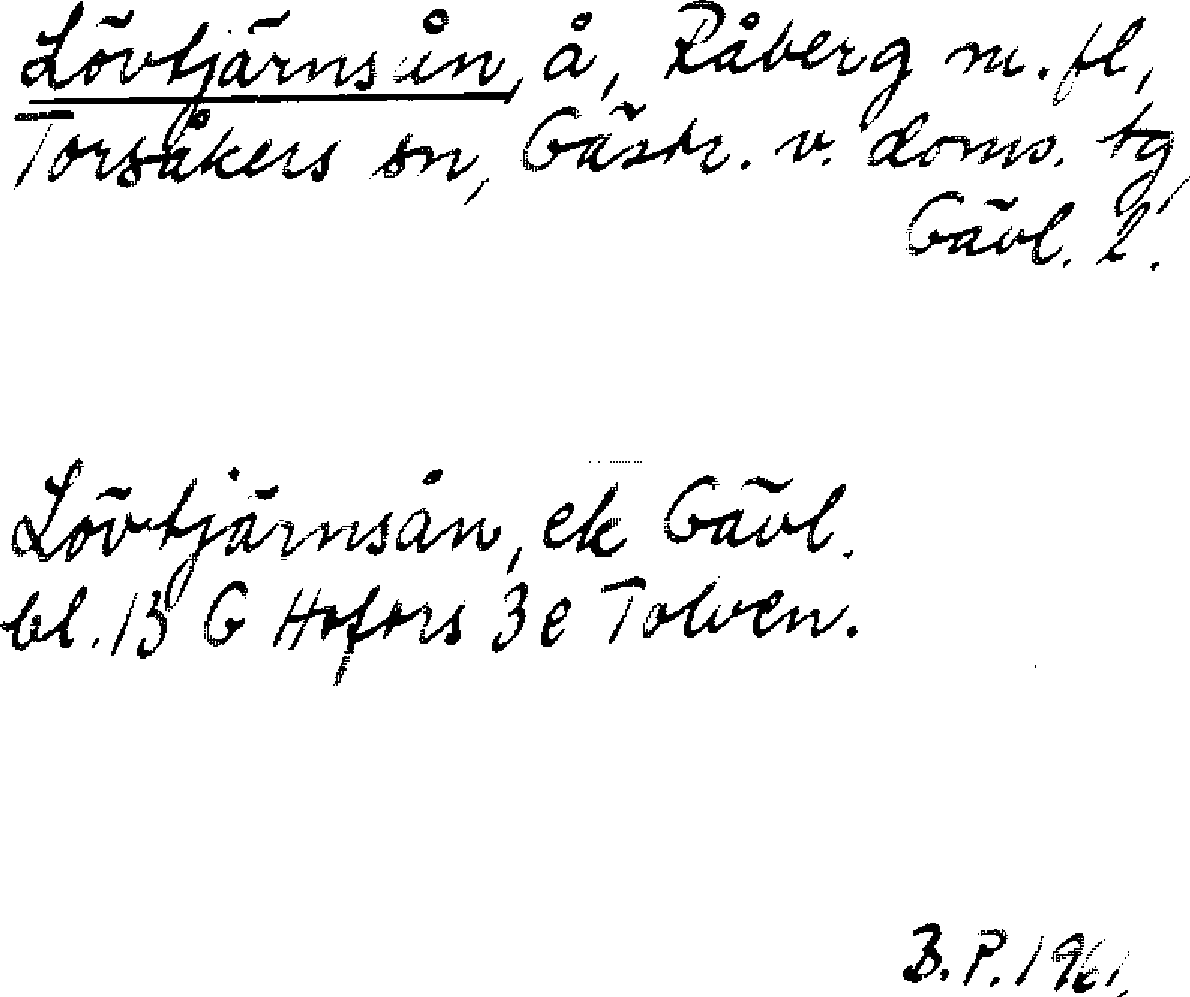 Lövtjärnsån, å, Råberg m.fl,
Torsåkers sn, Gästr. v. doms. tg,
Gävl. l.
Lövtjärnsån, ek Gävl.
bl. 13 G Hofors 3e Tolven.
B.P. 1961.